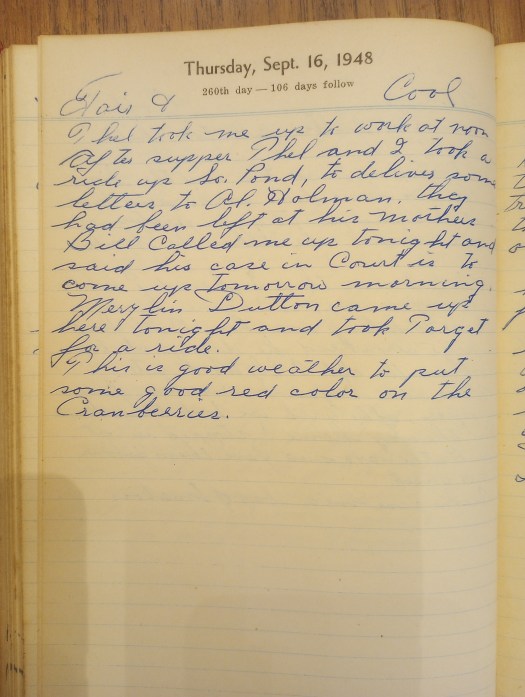 Thursday, Sept. 16, 1948
260th day — 106 days follow
Fair & Cool
Thel took me up to work at noon
After supper Thel and I took a
ride up So. Pond, to deliver some
letters to Al. Holman. they
had been left at his mothers
Bill called me up tonight and
said his case in Court is to
come up tomorrow morning.
Merylin Dutton came up
here tonight and took Target
for a ride.
This is good weather to put
some good red color on the
Cranberries.